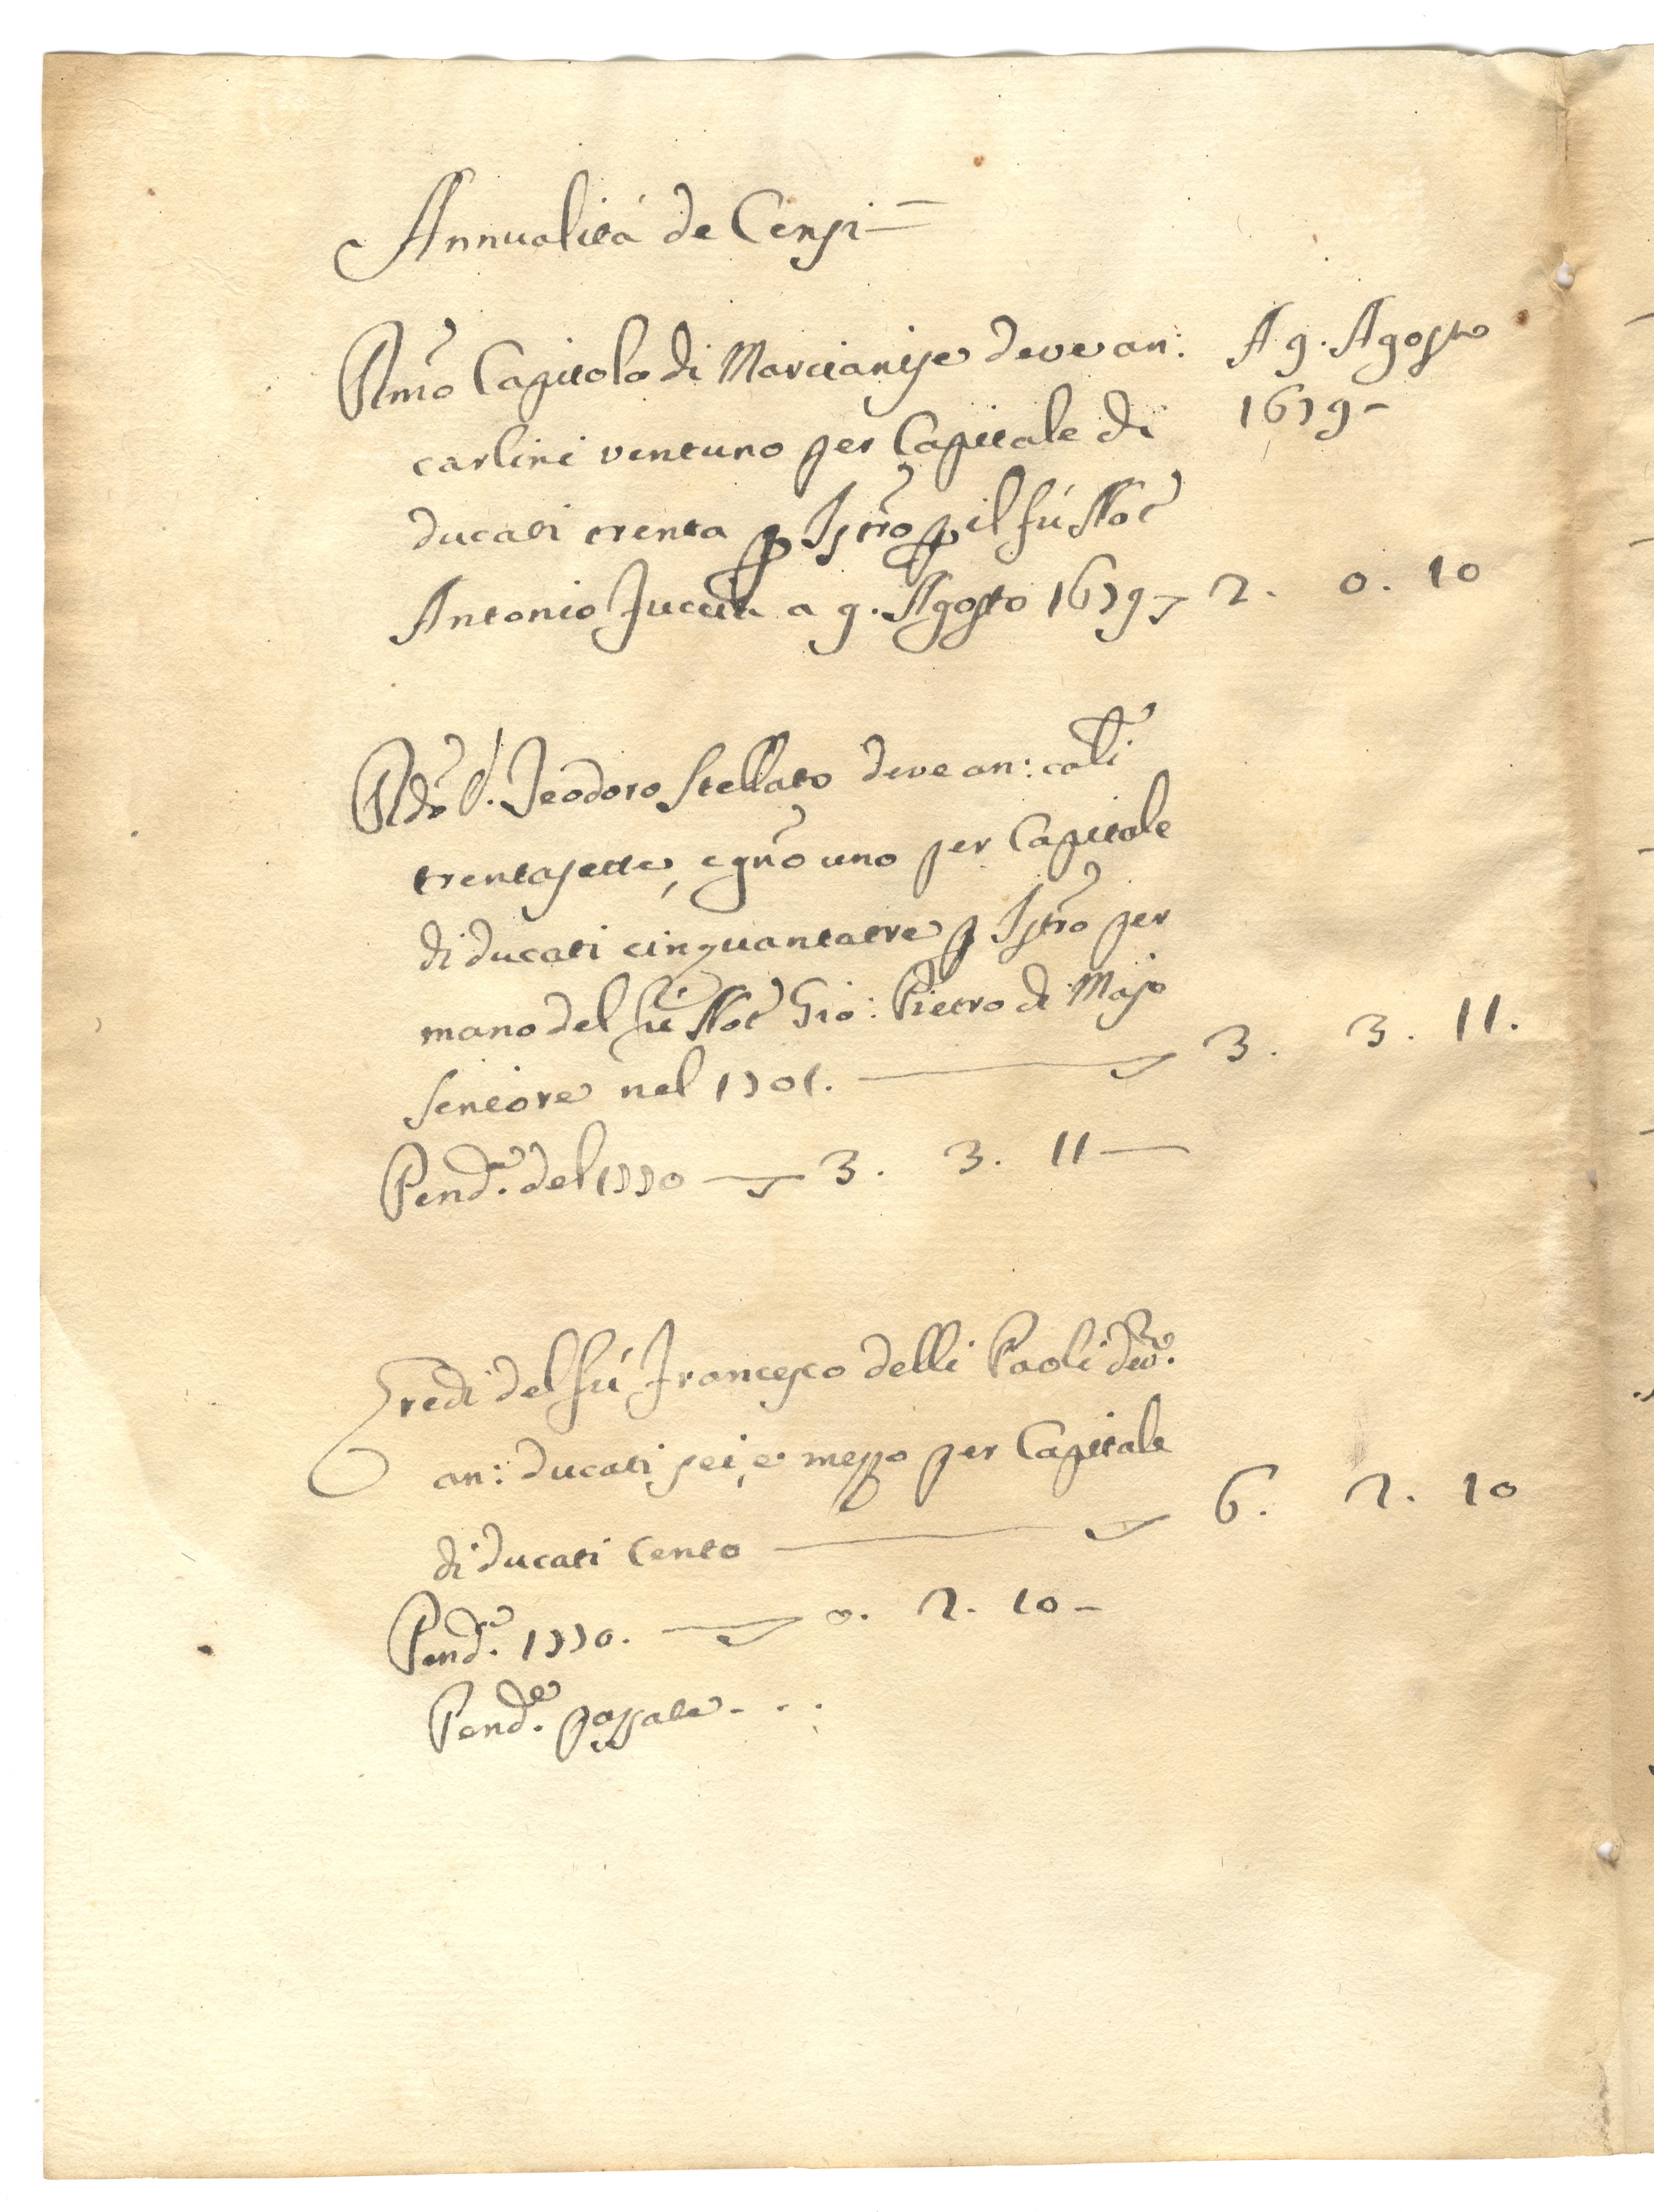 Annualitá de Censi
Rmõ Capitolo di Marcianise deve an: A 9. Agosto
carlini ventuno per Capitale di 1679-
ducati trenta p Istrõ p il fú Not
Antonio Juccia a 9. Agosto 1679 2. 0. 10
Rdõ D. Teodoro Stellato deve an: carli
trentasette, e grñõ uno per Capitale
di ducati cinquantatre p Istrõ per
mano del fú Not Gio: Pietro di Majo
Seniore nel 1701. 3. 3. 11.
Pend.e del 1770 3. 3. 11
Eredi del fú Francesco delli Paoli dev.o
an: ducati sei, e mezzo per Capitale
di ducati Cento 6. 2. 10
Pend.e 1770. 0. 2. 10-
Pend.e passate - . .